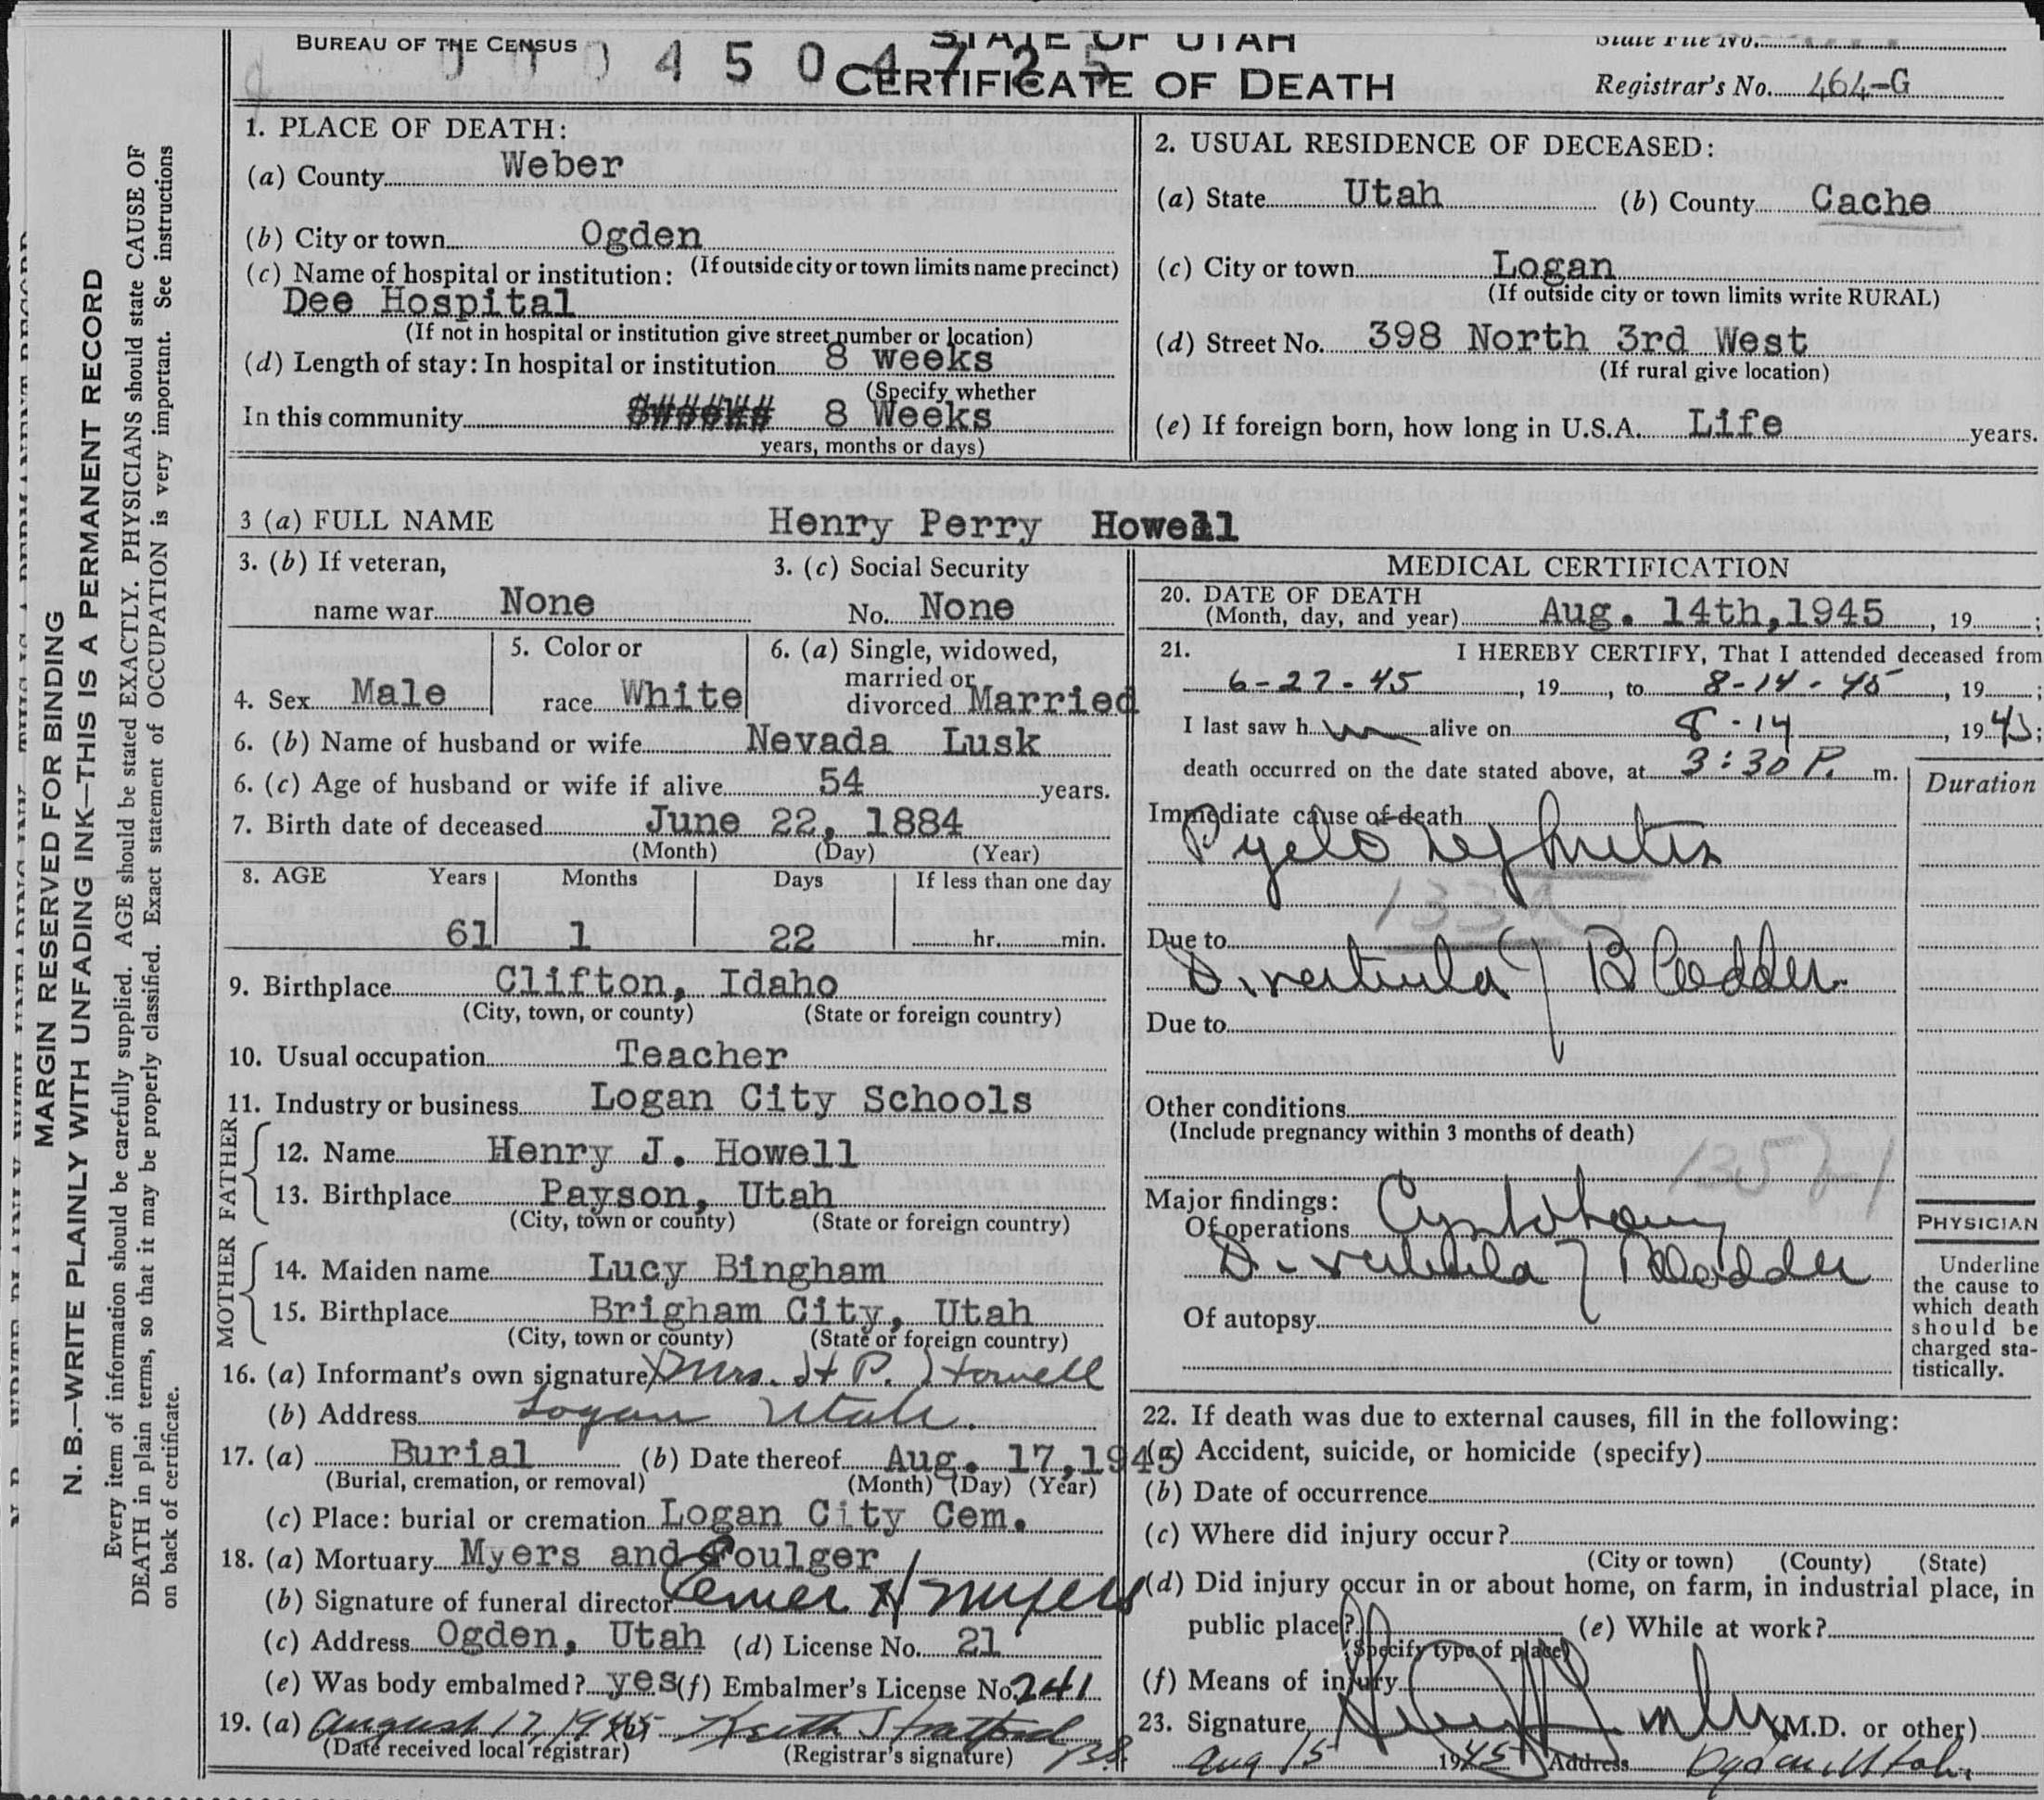 BUREAU OF THE CENSUS
STATE OF UTAH
CERTIFICATE OF DEATH
State File No.
Registrar's No. 464-G
1. PLACE OF DEATH:
(a) County Weber
(b) City or town Ogden
(If outside city or town limits name precinct)
(c) Name of hospital or institution:
Dee Hospital
(If not in hospital or institution give street number or location)
(d) Length of stay: In hospital or institution 8 weeks
(Specify whether
In this community 8 Weeks
years, months or days)
2. USUAL RESIDENCE OF DECEASED:
(a) State Utah (b) County Cache
(c) City or town Logan
(If outside city or town limits write RURAL)
(d) Street No. 398 North 3rd West
(If rural give location)
(e) If foreign born, how long in U.S.A. Life years.
3 (a) FULL NAME Henry Perry Howell
3. (b) If veteran,
name war None
3. (c) Social Security
No. None
4. Sex Male
5. Color or
race White
6. (a) Single, widowed,
married or
divorced Married
6. (b) Name of husband or wife Nevada Lusk
6. (c) Age of husband or wife if alive 54 years.
7. Birth date of deceased June 22, 1884
(Month) (Day) (Year)
8. AGE Years Months Days If less than one day
61 1 22 hr. min.
9. Birthplace Clifton, Idaho
(City, town, or county) (State or foreign country)
10. Usual occupation Teacher
11. Industry or business Logan City Schools
FATHER
12. Name Henry J. Howell
13. Birthplace Payson, Utah
(City, town or county) (State or foreign country)
MOTHER
14. Maiden name Lucy Bingham
15. Birthplace Brigham City, Utah
(City, town or county) (State or foreign country)
16. (a) Informant's own signature Mrs. H P. Howell
(b) Address Logan Utah.
17. (a) Burial (b) Date thereof Aug. 17, 1945
(Burial, cremation, or removal) (Month) (Day) (Year)
(c) Place: burial or cremation Logan City Cem.
18. (a) Mortuary Myers and Foulger
(b) Signature of funeral director Myers
(c) Address Ogden, Utah (d) License No. 21
(e) Was body embalmed? yes (f) Embalmer's License No. 241
19. (a) August 17, 1945 Keith Stratford
(Date received local registrar) (Registrar's signature)
MEDICAL CERTIFICATION
20. DATE OF DEATH
(Month, day, and year) Aug. 14th, 1945, 19 ;
21. I HEREBY CERTIFY, That I attended deceased from
6-27-45, 19 , to 8-14-45, 19 ;
I last saw h im alive on 8-14, 1945;
death occurred on the date stated above, at 3:30 P. m.
Duration
Immediate cause of death
Pyelo nephritis
133a
Due to
Diverticula of Bladder
Due to
Other conditions
(Include pregnancy within 3 months of death)
Major findings:
Of operations Cystotomy
Diverticula of Bladder
Of autopsy
PHYSICIAN
Underline
the cause to
which death
should be
charged sta-
tistically.
22. If death was due to external causes, fill in the following:
(a) Accident, suicide, or homicide (specify)
(b) Date of occurrence
(c) Where did injury occur?
(City or town) (County) (State)
(d) Did injury occur in or about home, on farm, in industrial place, in
public place? (e) While at work?
(Specify type of place)
(f) Means of injury
23. Signature (M.D. or other)
Aug 15 1945 Address Ogden Utah.
MARGIN RESERVED FOR BINDING
N. B.—WRITE PLAINLY WITH UNFADING INK—THIS IS A PERMANENT RECORD
Every item of information should be carefully supplied. AGE should be stated EXACTLY. PHYSICIANS should state CAUSE OF
DEATH in plain terms, so that it may be properly classified. Exact statement of OCCUPATION is very important. See instructions
on back of certificate.